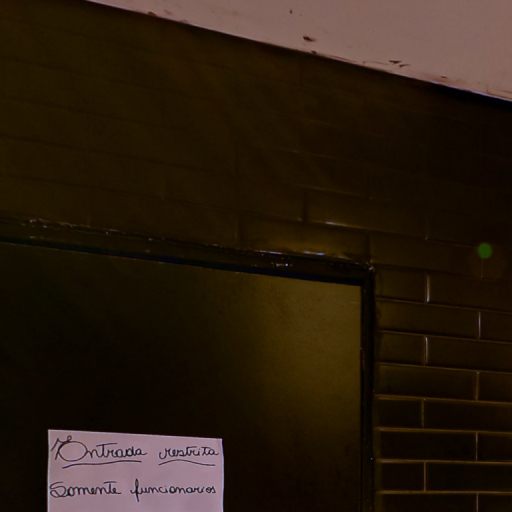 Entrada restrita
Somente funcionarios